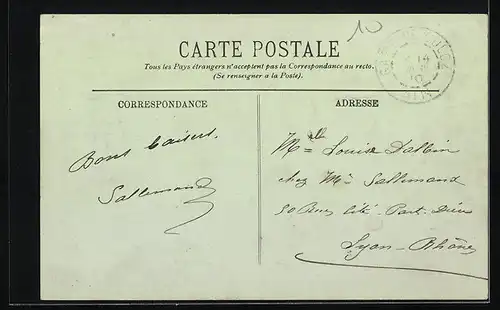 10
CARTE POSTALE
Tous les Pays étrangers n'acceptent pas la Correspondance au recto.
(Se renseigner a la Poste).
CORRESPONDANCE
ADRESSE
Bons baisers.
Sallemand
Melle Louise Dalbin
chez Mr Sallemand
50 Rue Cité Part-Dieu
Lyon-Rhône